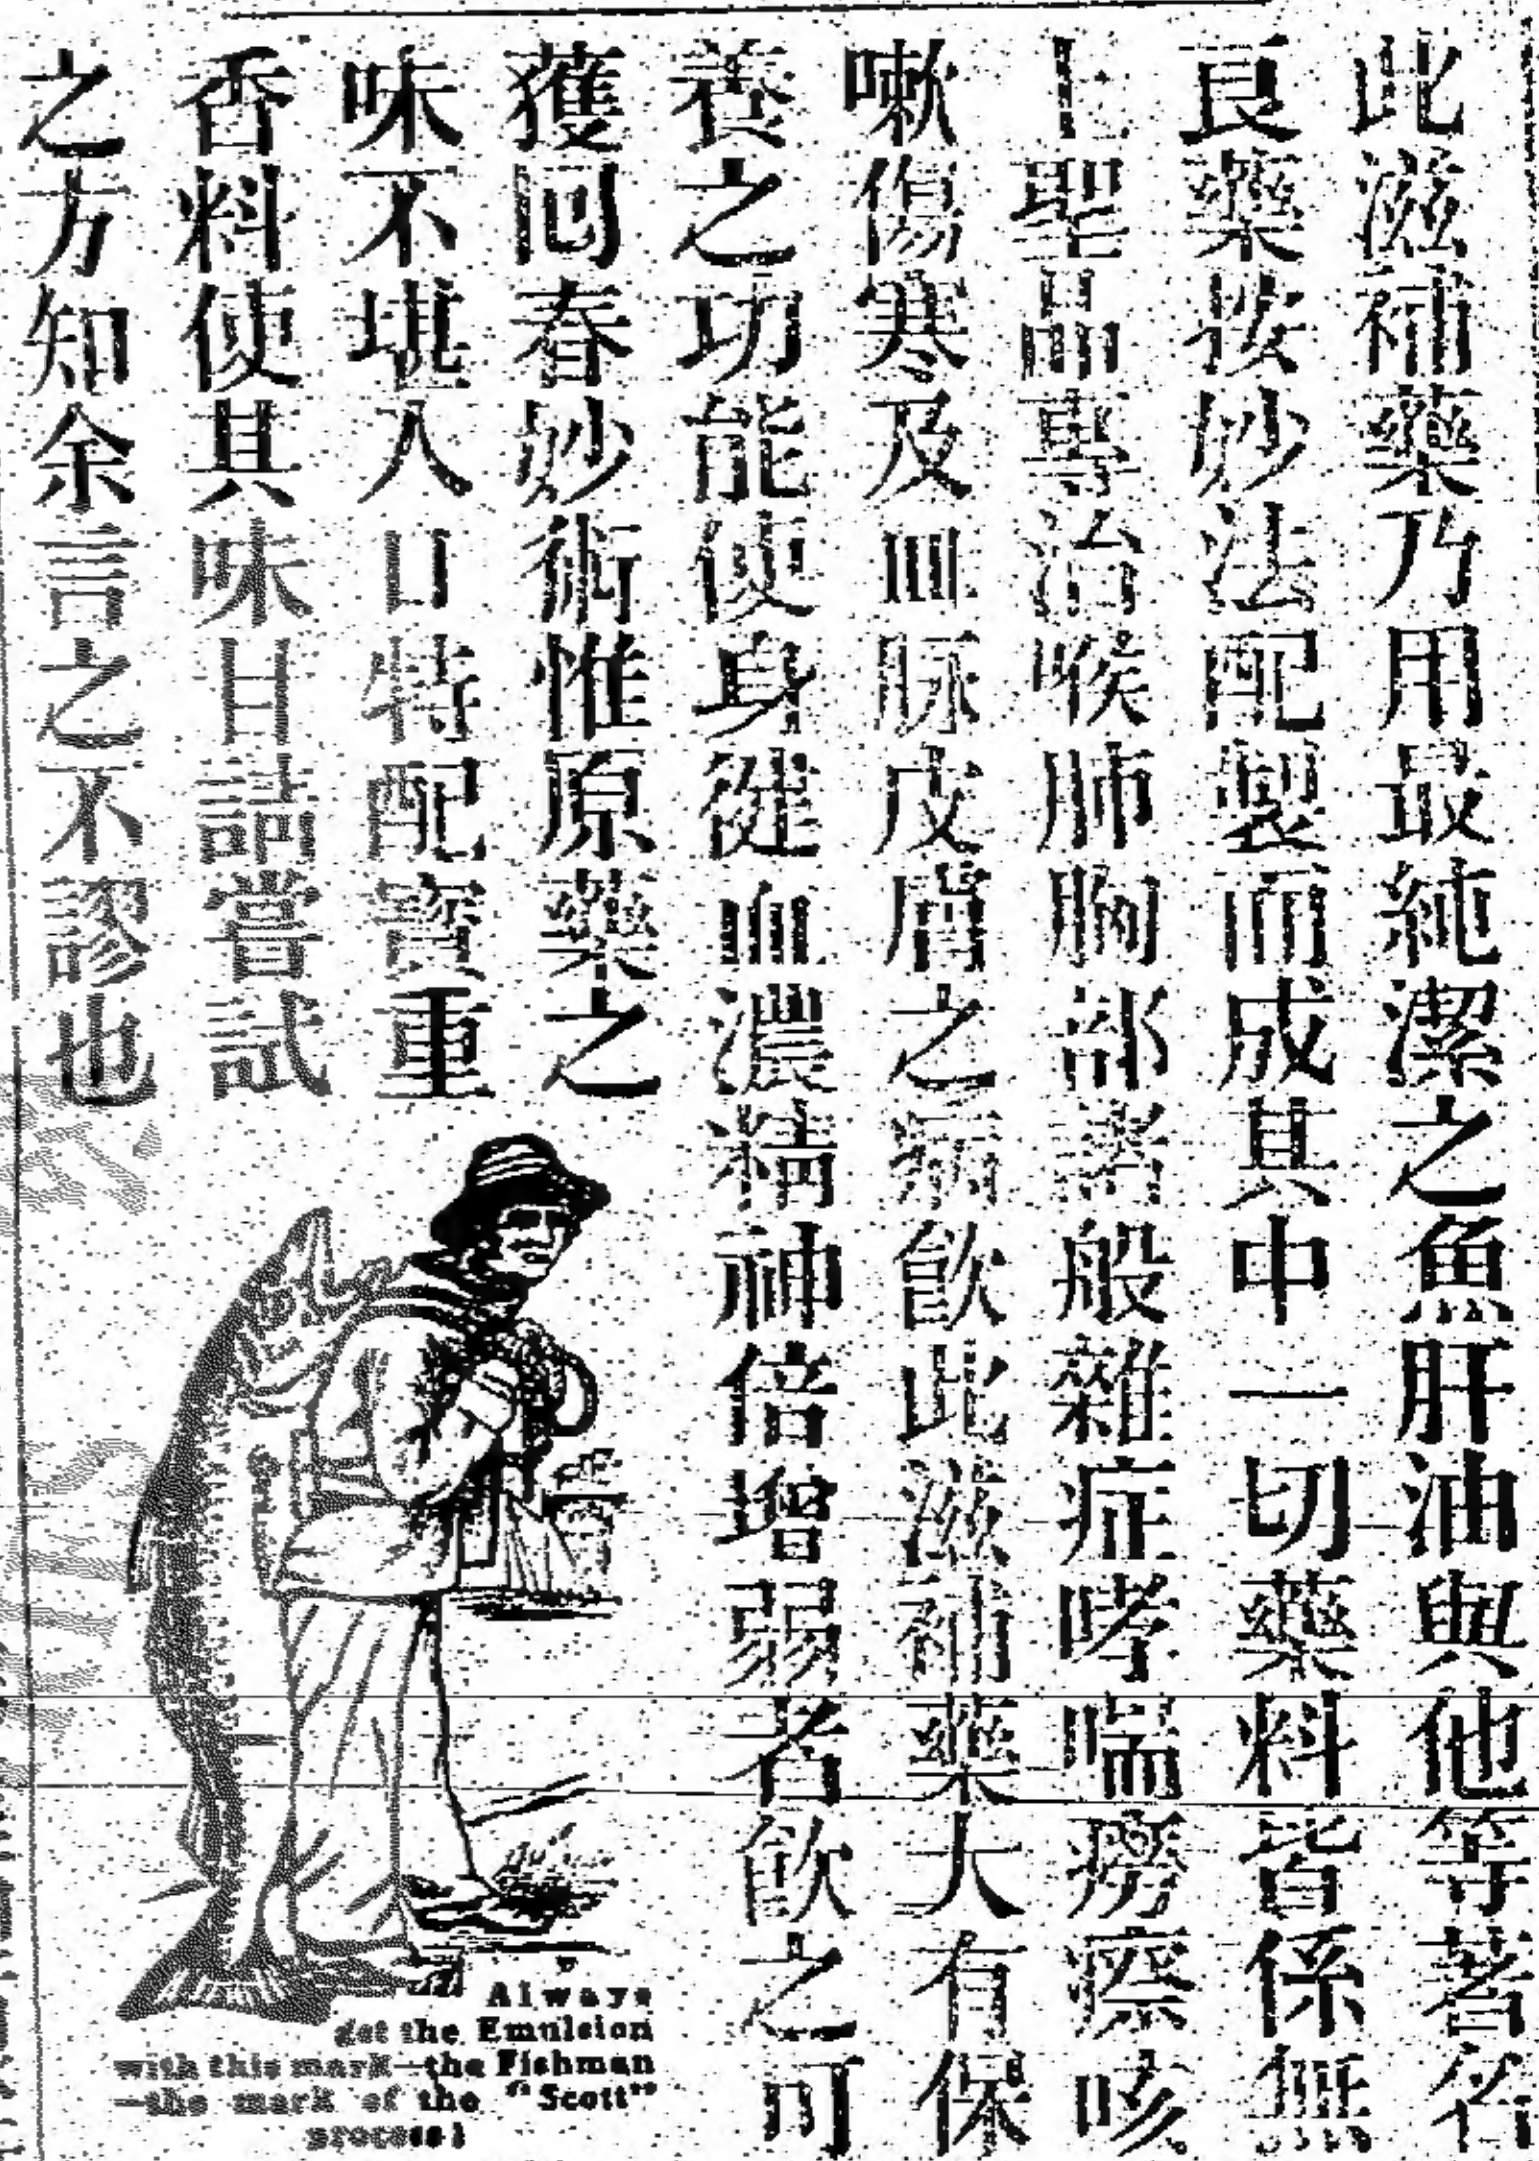 此滋補藥乃用最純潔之魚肝油與他等著名
良藥按妙法配製而成其中一切藥料皆係無
上聖品專治喉肺胸部諸般雜症哮喘癆瘵咳
嗽傷寒及血脉皮膚之病飮此滋補藥大有保
養之功能使身健血濃精神倍增弱者飮之可
獲回春妙術惟原藥之
味不堪入口特配寶重
香料使其味甘請嘗試
之方知余言之不謬也
Always
get the Emulsion
with this mark—the Fishman
—the mark of the "Scott"
process!